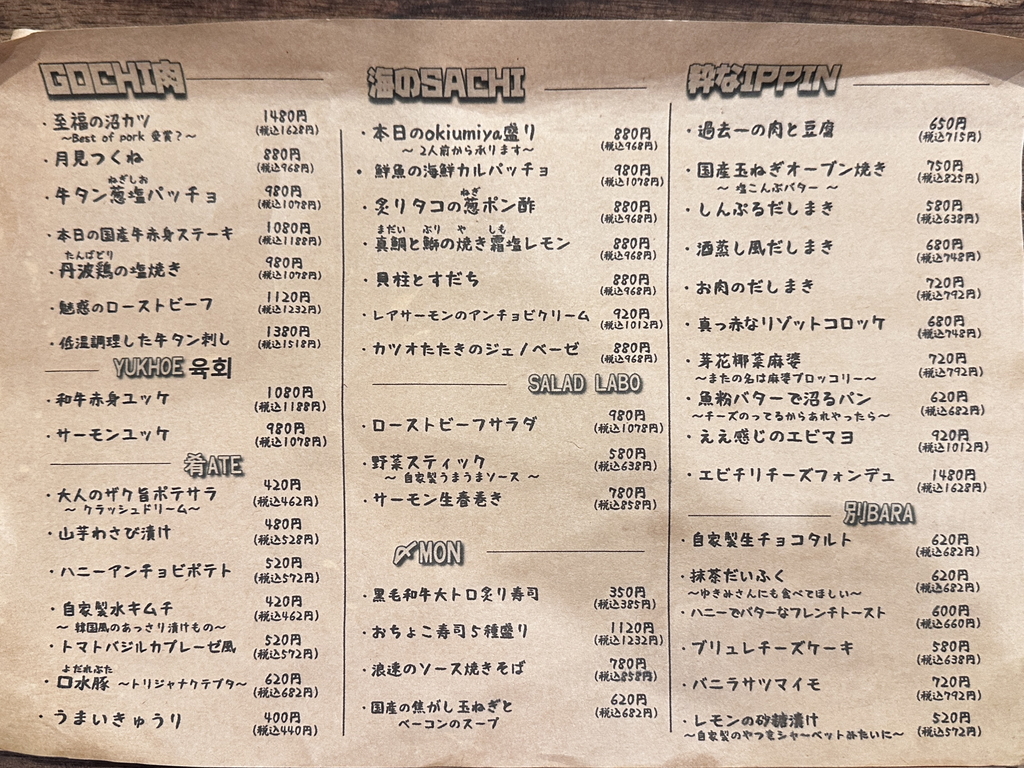 GOCHI肉
・至福の沼カツ 1480円
～Best of pork 受賞？～ (税込1628円)
・月見つくね 880円
(税込968円)
ねぎしお
・牛タン葱塩パッチョ 980円
(税込1078円)
・本日の国産牛赤身ステーキ 1080円
(税込1188円)
たんばどり
・丹波鶏の塩焼き 980円
(税込1078円)
・魅惑のローストビーフ 1120円
(税込1232円)
・低温調理した牛タン刺し 1380円
(税込1518円)
YUKHOE 육회
・和牛赤身ユッケ 1080円
(税込1188円)
・サーモンユッケ 980円
(税込1078円)
肴ATE
・大人のザク旨ポテサラ 420円
～クラッシュドリーム～ (税込462円)
・山芋わさび漬け 480円
(税込528円)
・ハニーアンチョビポテト 520円
(税込572円)
・自家製水キムチ 420円
～韓国風のあっさり漬けもの～ (税込462円)
・トマトバジルカプレーゼ風 520円
(税込572円)
よだれぶた
・口水豚 ～トリジャナクテブタ～ 620円
(税込682円)
・うまいきゅうり 400円
(税込440円)
海のSACHI
・本日のokiumiya盛り 880円
～2人前から承ります～ (税込968円)
・鮮魚の海鮮カルパッチョ 980円
(税込1078円)
ねぎ
・炙りタコの葱ポン酢 880円
(税込968円)
まだい ぶり や しも
・真鯛と鰤の焼き霜塩レモン 880円
(税込968円)
・貝柱とすだち 880円
(税込968円)
・レアサーモンのアンチョビクリーム 920円
(税込1012円)
・カツオたたきのジェノベーゼ 880円
(税込968円)
SALAD LABO
・ローストビーフサラダ 980円
(税込1078円)
・野菜スティック 580円
～自家製うまうまソース～ (税込638円)
・サーモン生春巻き 780円
(税込858円)
〆MON
・黒毛和牛大トロ炙り寿司 350円
(税込385円)
・おちょこ寿司5種盛り 1120円
(税込1232円)
・浪速のソース焼きそば 780円
(税込858円)
・国産の焦がし玉ねぎと 620円
ベーコンのスープ (税込682円)
粋なIPPIN
・過去一の肉と豆腐 650円
(税込715円)
・国産玉ねぎオーブン焼き 750円
～塩こんぶバター～ (税込825円)
・しんぷるだしまき 580円
(税込638円)
・酒蒸し風だしまき 680円
(税込748円)
・お肉のだしまき 720円
(税込792円)
・真っ赤なリゾットコロッケ 680円
(税込748円)
・芽花椰菜麻婆 720円
～またの名は麻婆ブロッコリー～ (税込792円)
・魚粉バターで沼るパン 620円
～チーズのってるからあれやったら～ (税込682円)
・ええ感じのエビマヨ 920円
(税込1012円)
・エビチリチーズフォンデュ 1480円
(税込1628円)
別BARA
・自家製生チョコタルト 620円
(税込682円)
・抹茶だいふく 620円
～ゆきみさんにも食べてほしい～ (税込682円)
・ハニーでバターなフレンチトースト 600円
(税込660円)
・ブリュレチーズケーキ 580円
(税込638円)
・バニラサツマイモ 720円
(税込792円)
・レモンの砂糖漬け 520円
～自家製のやつをシャーベットみたいに～ (税込572円)